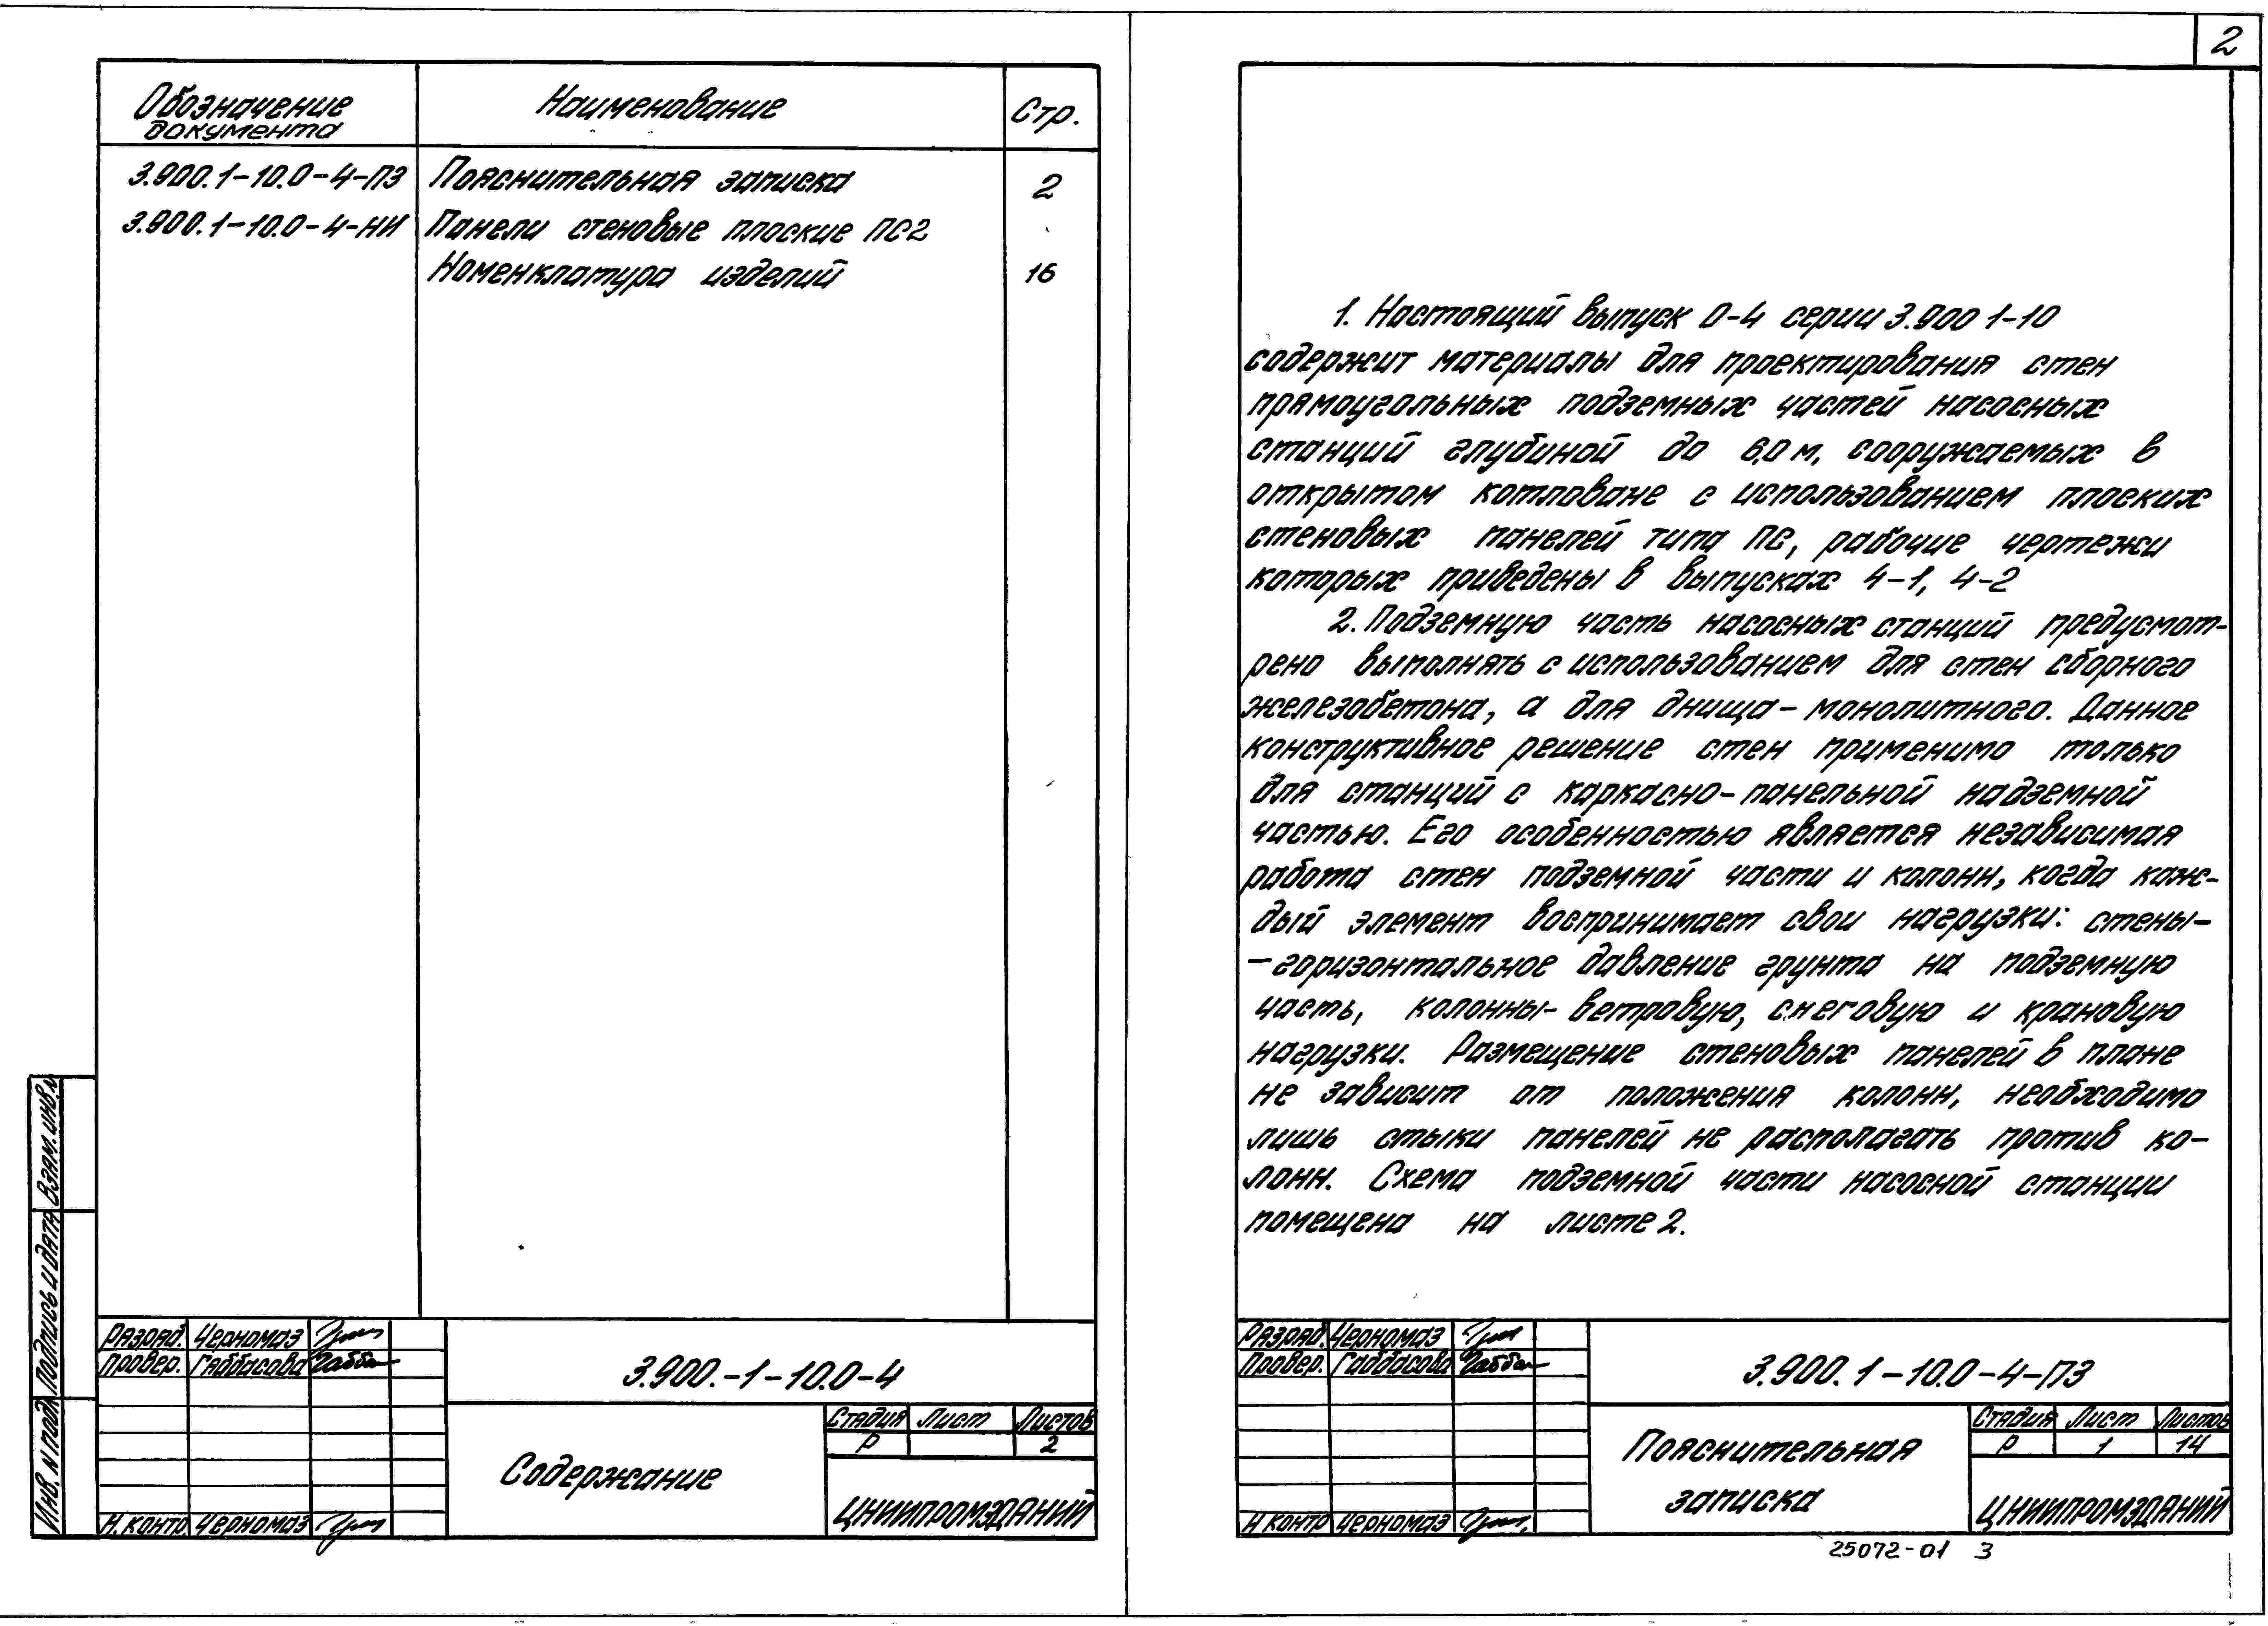 2
Обозначение документа
Наименование
Стр.
3.900.1-10.0-4-ПЗ
Пояснительная записка
2
3.900.1-10.0-4-НИ
Панели стеновые плоские ПС2
Номенклатура изделий
16
Взам. инв. №
Подпись и дата
Инв. N подл
Разраб. Черномаз
Провер. Габбасова
Н. контр. Черномаз
3.900.-1-10.0-4
Содержание
Стадия Лист Листов
Р 2
ЦНИИПРОМЗДАНИЙ
1. Настоящий выпуск 0-4 серии 3.900 1-10
содержит материалы для проектирования стен
прямоугольных подземных частей насосных
станций глубиной до 6,0 м, сооружаемых в
открытом котловане с использованием плоских
стеновых панелей типа ПС, рабочие чертежи
которых приведены в выпусках 4-1, 4-2
2. Подземную часть насосных станций предусмот-
рено выполнять с использованием для стен сборного
железобетона, а для днища - монолитного. Данное
конструктивное решение стен применимо только
для станций с каркасно-панельной надземной
частью. Его особенностью является независимая
работа стен подземной части и колонн, когда каж-
дый элемент воспринимает свои нагрузки: стены-
-горизонтальное давление грунта на подземную
часть, колонны- ветровую, снеговую и крановую
нагрузки. Размещение стеновых панелей в плане
не зависит от положения колонн, необходимо
лишь стыки панелей не располагать против ко-
лонн. Схема подземной части насосной станции
помещена на листе 2.
Разраб. Черномаз
Провер. Габбасова
Н контр Черномаз
3.900.1-10.0-4-ПЗ
Пояснительная
записка
Стадия Лист Листов
Р 1 14
ЦНИИПРОМЗДАНИЙ
25072-01 3